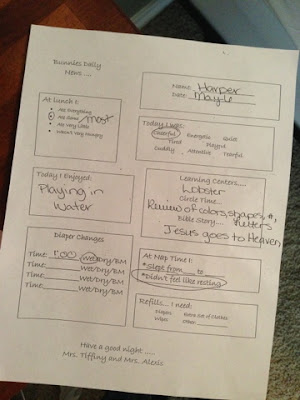 Bunnies Daily
News ....
Name: Harper
Date: May 6
At lunch I:
Ate Everything
Ate Some most
Ate Very Little
Wasn't Very Hungry
Today I was:
Cheerful Energetic Quiet
Tired Playful
Cuddly Attentive Tearful
Today I Enjoyed:
Playing in
Water
Learning Centers....
Lobster
Circle Time...
Review of colors, shapes, #,
letters
Bible Story....
Jesus goes to Heaven
Diaper Changes
Time: 1:00 Wet/Dry/BM
Time: Wet/Dry/BM
Time: Wet/Dry/BM
Time: Wet/Dry/BM
At Nap Time I:
*Slept from to
*Didn't feel like resting
Refills... I need:
Diapers Extra Set of Clothes
Wipes Other:
Have a good night .....
Mrs. Tiffiny and Mrs. Alexis